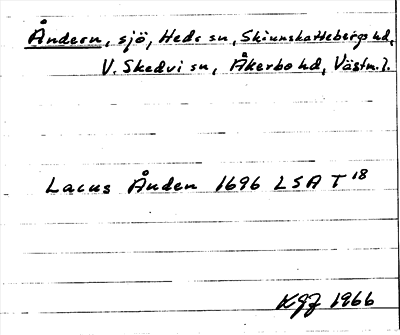 Ändern, sjö, Heds sn, Skinnskattebergs hd,
V. Skedvi sn, Åkerbo hd, Västm. l.
Lacus Ånden 1696 LSA T 18
KGJ 1966